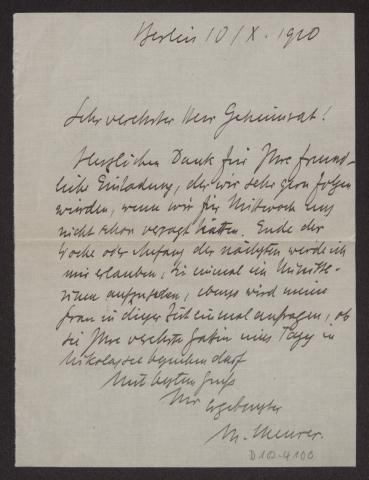 Berlin 10/X. 1920
Sehr verehrter Herr Geheimrat!
Herzlichen Dank für Ihre freund-
liche Einladung, der wir sehr gern folgen
würden, wenn wir für Mittwoch uns
nicht schon versagt hätten. Ende der
Woche oder Anfang der nächsten werde ich
mir erlauben, Sie einmal im
aufzusuchen, ebenso wird meine
Frau in dieser Zeit einmal anfragen, ob
sie Ihre verehrte Gattin eines Tages in
Nikolassee begrüßen darf
Mit bestem Gruß
Ihr ergebenster
M. Meurer.
D 102-4100